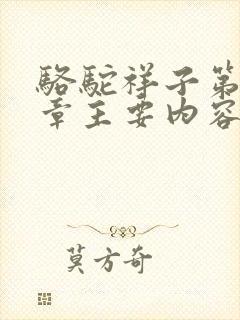 駱駝祥子第
章主要内容
莫方奇